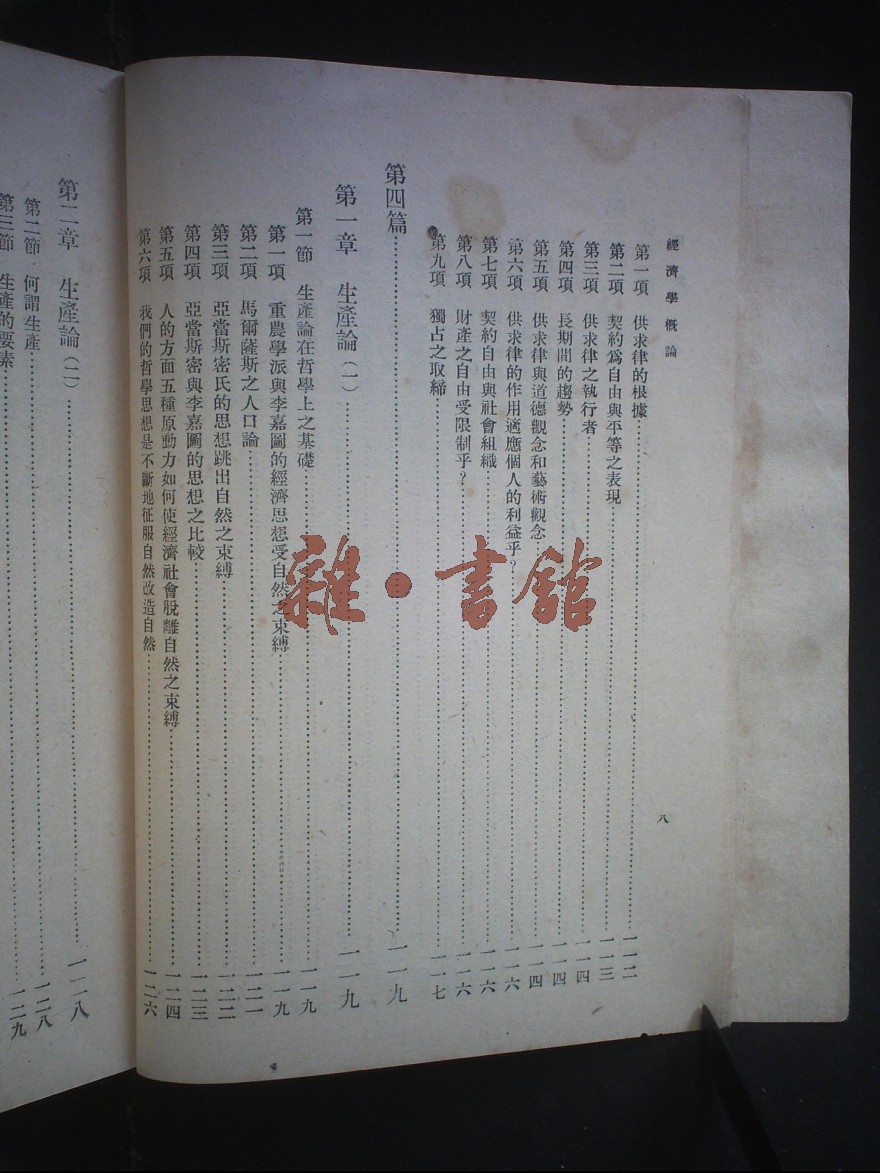 經濟學概論
八
第一項 供求律的根據……一一二
第二項 契約爲自由與平等之表現……一一三
第三項 供求律之執行者……一一四
第四項 長期間的趨勢……一一四
第五項 供求律與道德觀念和藝術觀念……一一四
第六項 供求律的作用適應個人的利益乎?……一一六
第七項 契約自由與社會組織……一一六
第八項 財產之自由受限制乎?……一一六
第九項 獨占之取締……一一七
第四篇……一一九
第一章 生產論(一)……一一九
第一節 生產論在哲學上之基礎……一一九
第一項 重農學派與李嘉圖的經濟思想受自然之束縛……一一九
第二項 馬爾薩斯之人口論……一二一
第三項 亞當斯密氏的思想跳出自然之束縛……一二二
第四項 亞當斯密與李嘉圖的思想之比較……一二三
第五項 人的方面五種原動力如何使經濟社會脫離自然之束縛……一二四
第六項 我們的哲學思想是不斷地征服自然改造自然……一二六
第二章 生產論(二)……一二八
第二節 何謂生產……一二八
第三節 生產的要素……一二九
雜·書館